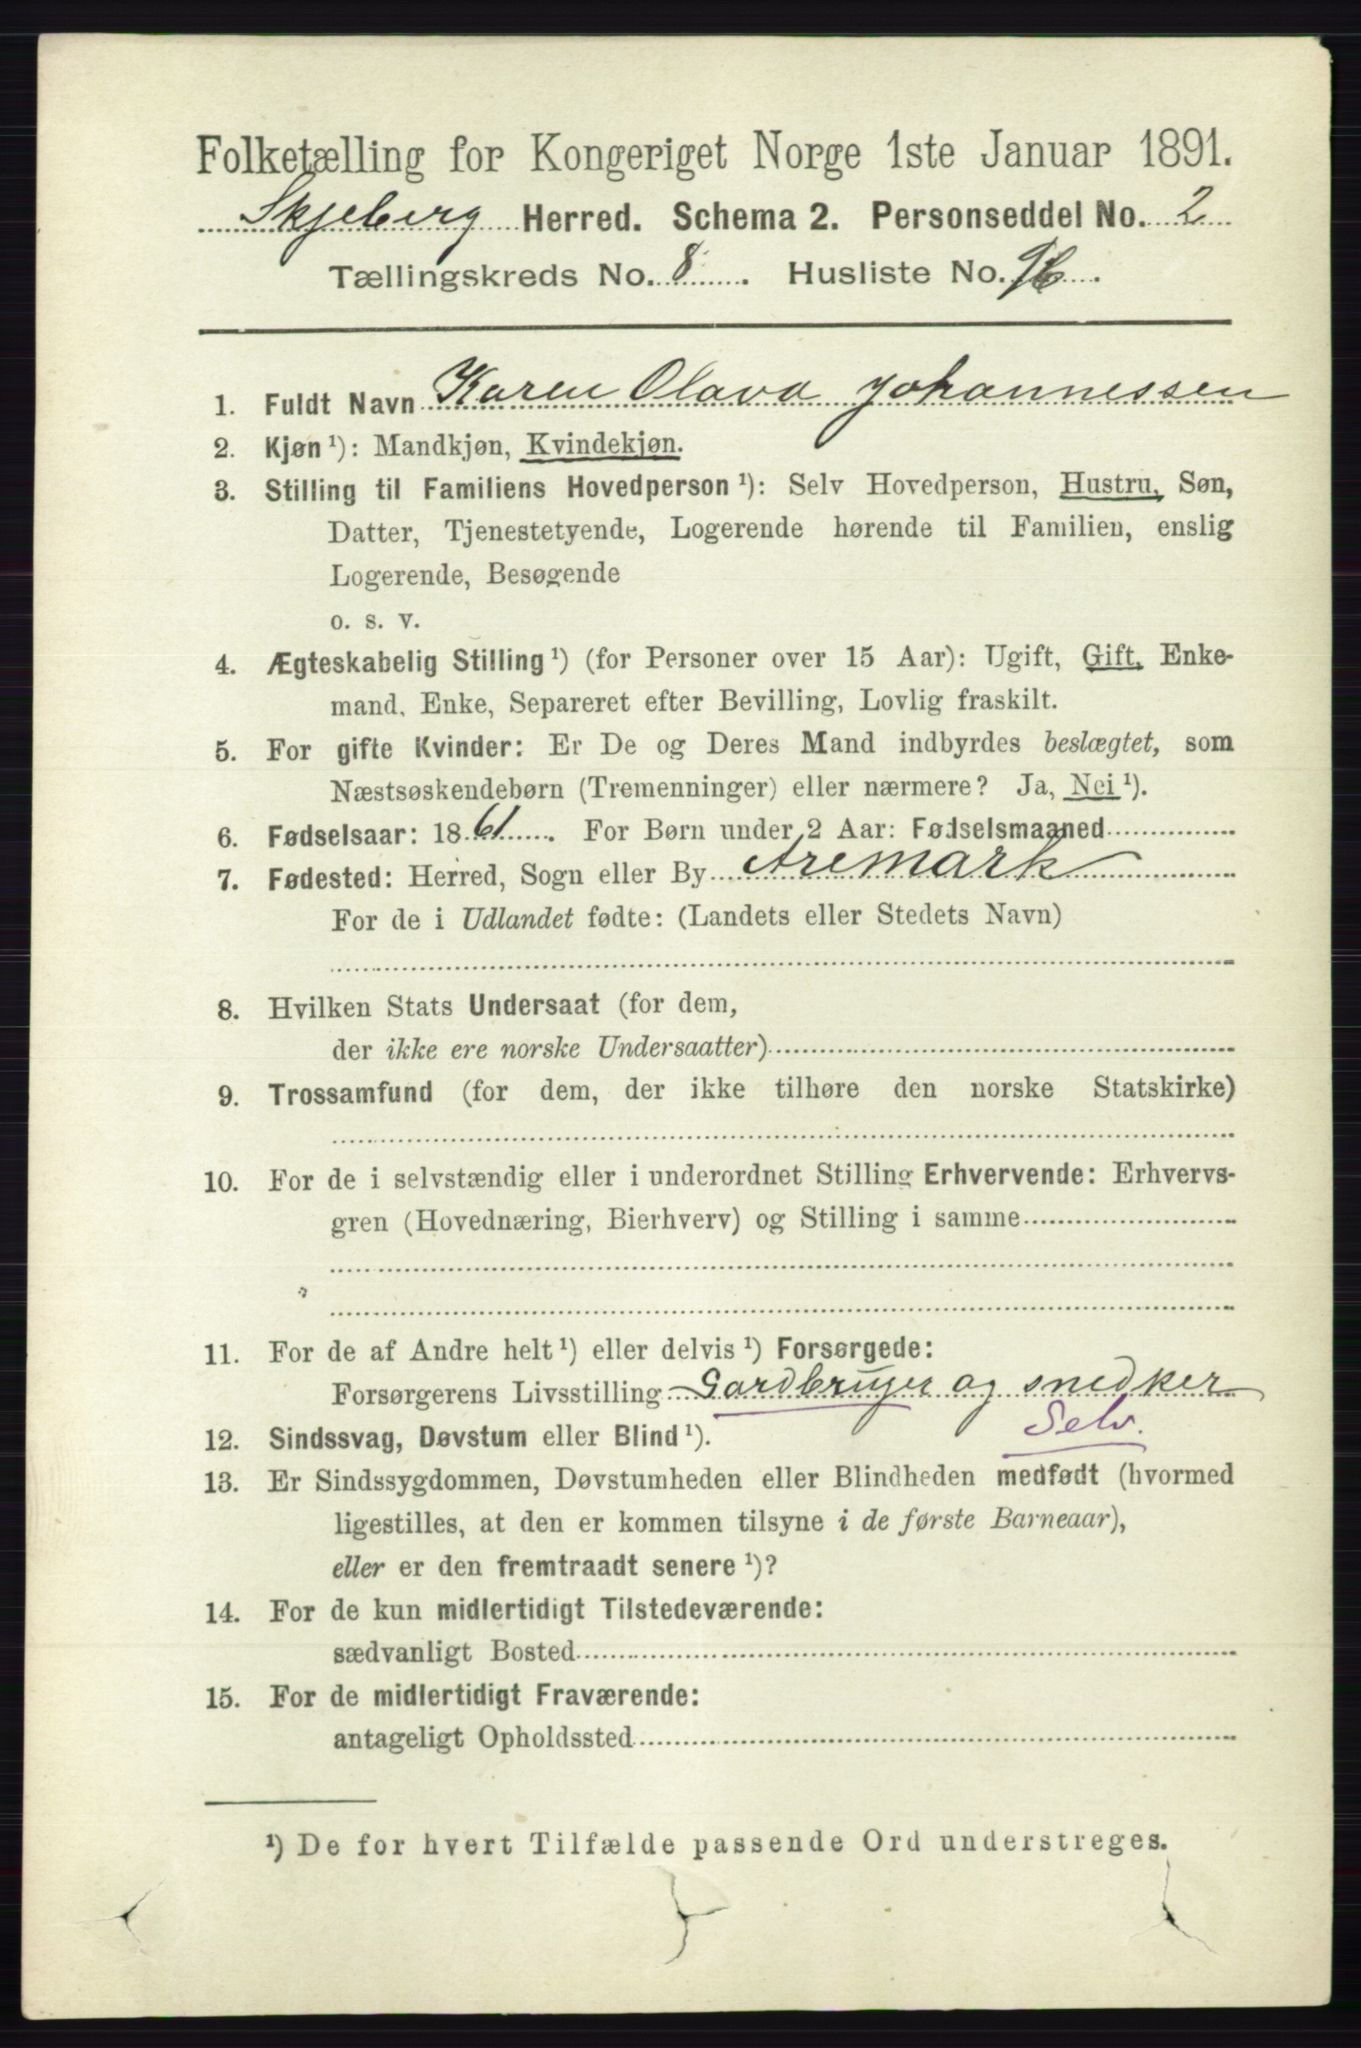 Folketælling for Kongeriget Norge 1ste Januar 1891.
Skjeberg Herred. Schema 2. Personseddel No. 2
Tællingskreds No. 8. Husliste No. 96.
1. Fuldt Navn Karen Olava Johannessen
2. Kjøn ¹): Mandkjøn, Kvindekjøn.
3. Stilling til Familiens Hovedperson ¹): Selv Hovedperson, Hustru, Søn,
Datter, Tjenestetyende, Logerende hørende til Familien, enslig
Logerende, Besøgende
o. s. v.
4. Ægteskabelig Stilling ¹) (for Personer over 15 Aar): Ugift, Gift, Enke-
mand, Enke, Separeret efter Bevilling, Lovlig fraskilt.
5. For gifte Kvinder: Er De og Deres Mand indbyrdes beslægtet, som
Næstsøskendebørn (Tremenninger) eller nærmere? Ja, Nei ¹).
6. Fødselsaar: 1861. For Børn under 2 Aar: Fødselsmaaned
7. Fødested: Herred, Sogn eller By Aremark
For de i Udlandet fødte: (Landets eller Stedets Navn)
8. Hvilken Stats Undersaat (for dem,
der ikke ere norske Undersaatter)
9. Trossamfund (for dem, der ikke tilhøre den norske Statskirke)
10. For de i selvstændig eller i underordnet Stilling Erhvervende: Erhvervs-
gren (Hovednæring, Bierhverv) og Stilling i samme
11. For de af Andre helt ¹) eller delvis ¹) Forsørgede:
Forsørgerens Livsstilling Gardbruger og snedker
Selv.
12. Sindssvag, Døvstum eller Blind ¹).
13. Er Sindssygdommen, Døvstumheden eller Blindheden medfødt (hvormed
ligestilles, at den er kommen tilsyne i de første Barneaar),
eller er den fremtraadt senere ¹)?
14. For de kun midlertidigt Tilstedeværende:
sædvanligt Bosted
15. For de midlertidigt Fraværende:
antageligt Opholdssted
¹) De for hvert Tilfælde passende Ord understreges.